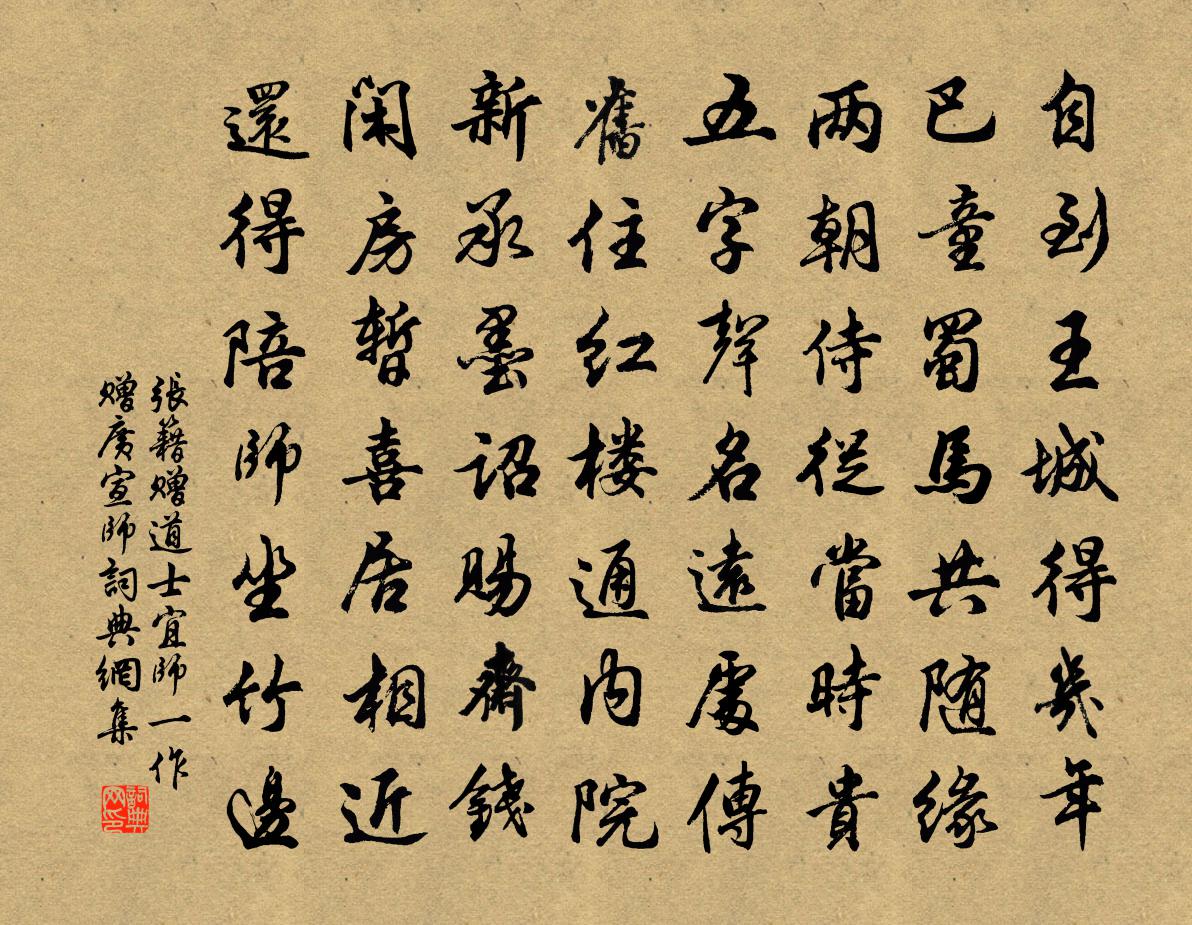 自到王城得幾年
巴童蜀馬共随緣
两朝侍從當時貴
五字聲名遠處傳
舊住紅楼通内院
新承墨詔賜齋錢
閑房暫喜居相近
還得陪師坐竹邊
張籍贈道士宜師一作
贈廣宣師詞典網集
詞典
网印